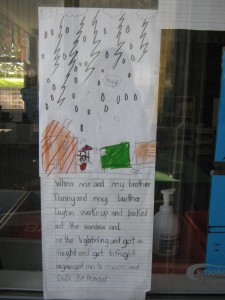 When me and my brother
Danny and my brother
Layton woke up and looked
out the window and
the lightning and got a
fright and get fright
again got in to mum and
Dad's
smoke